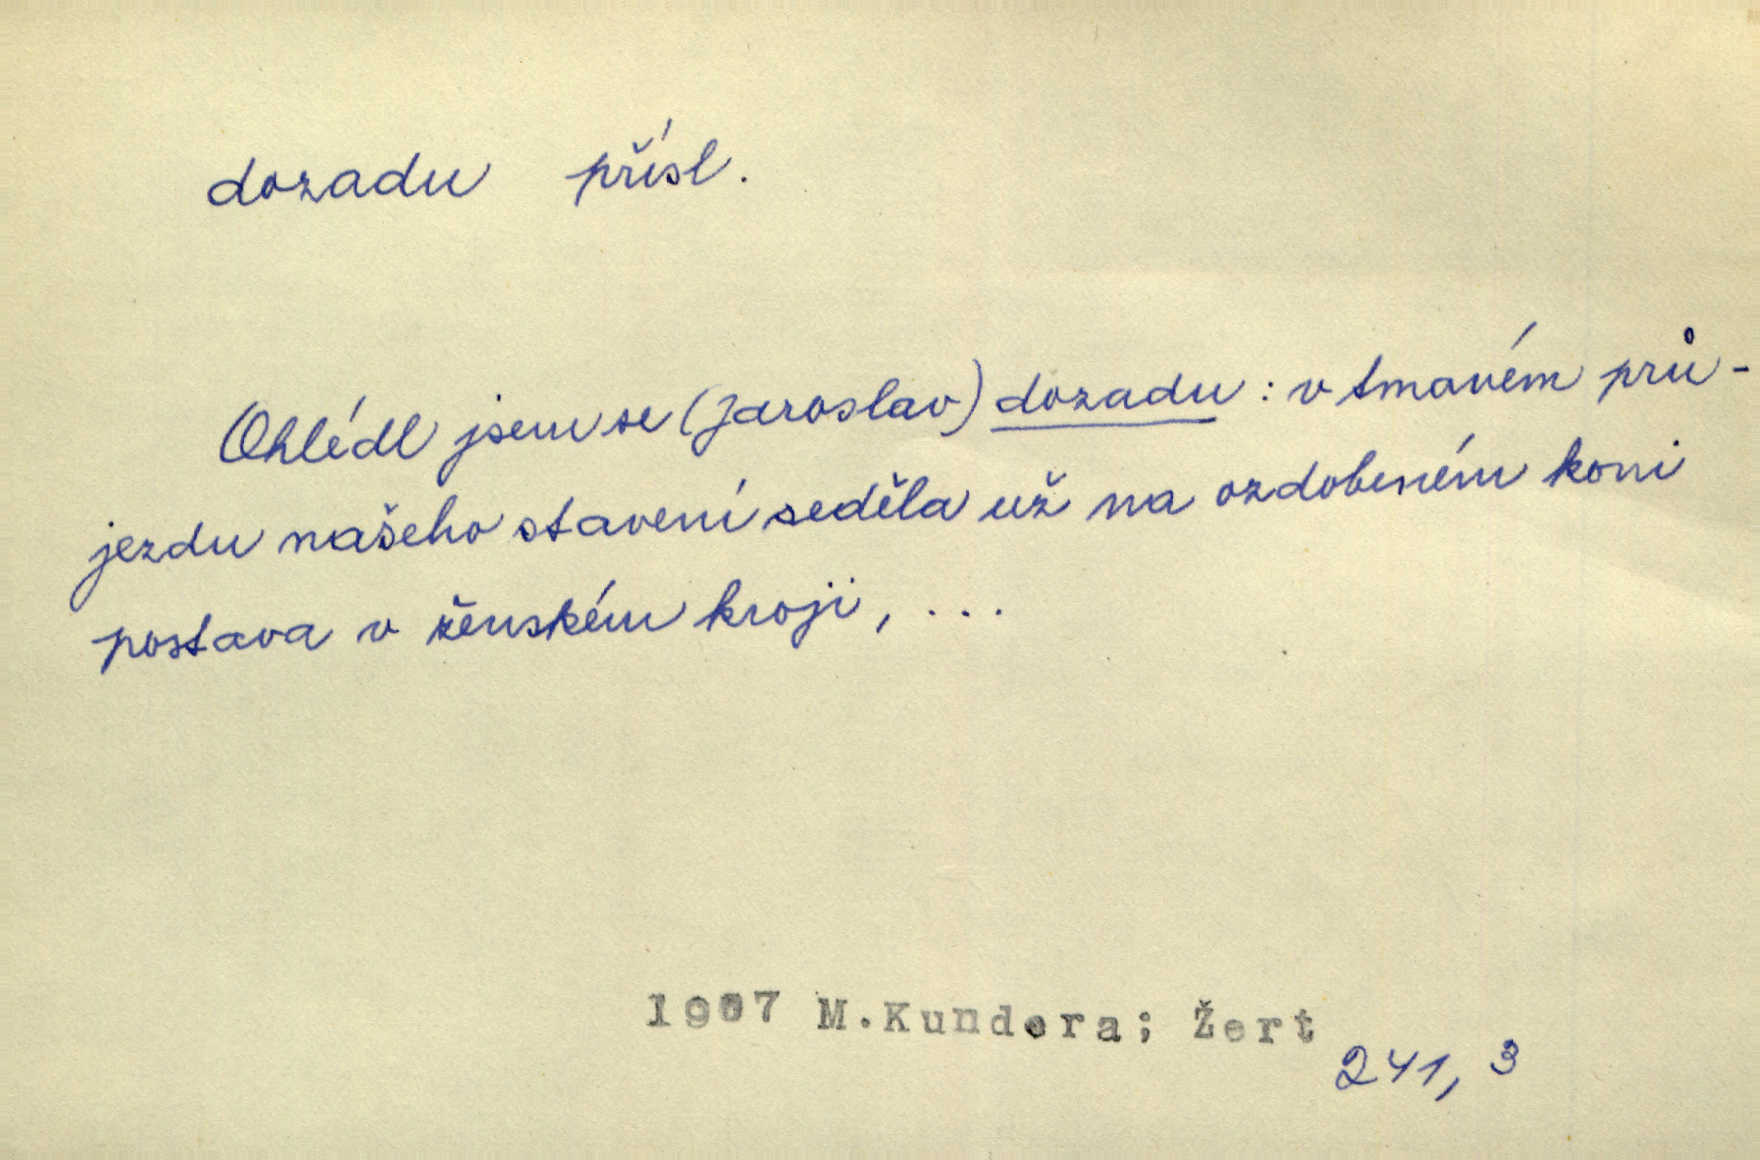 dozadu přísl.
Ohlédl jsem se (Jaroslav) dozadu : v tmavém prů-
jezdu našeho stavení seděla už na ozdobeném koni
postava v ženském kroji, ...
1967 M.Kundera; Žert
241, 3